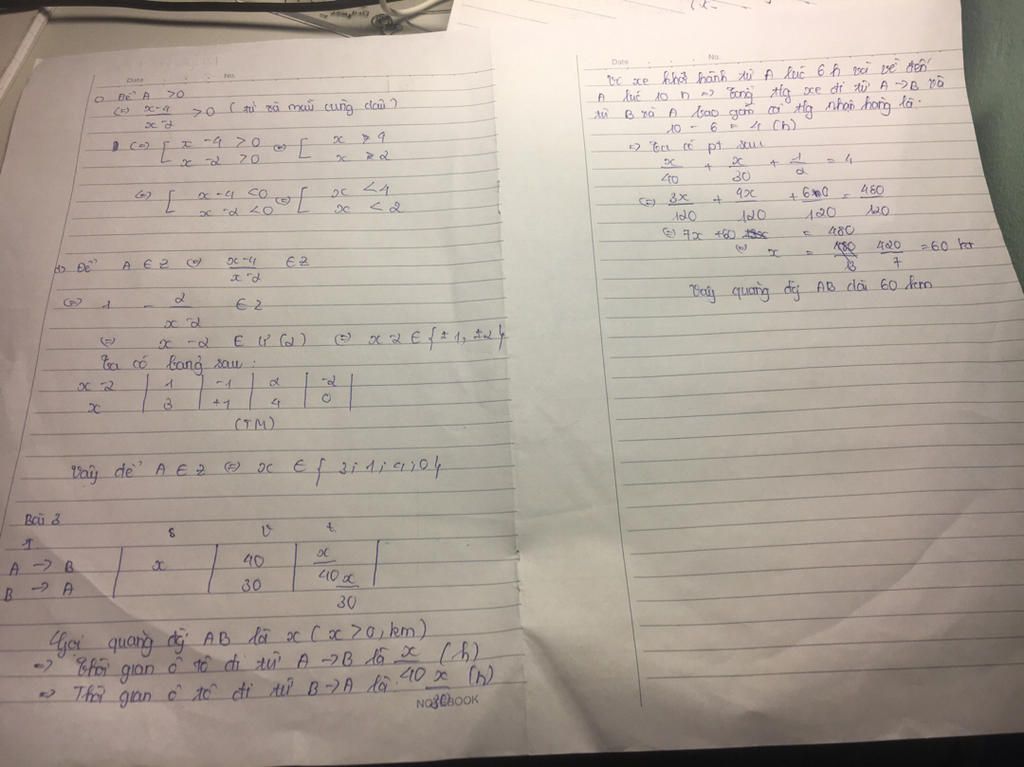 Date No.
c) Để A > 0
(=) x-4 / x-2 > 0 ( tử và mẫu cùng dấu )
(=) [ x - 4 > 0 (=) [ x > 4
x - 2 > 0 x > 2
(=) [ x - 4 < 0 (=) [ x < 4
x - 2 < 0 x < 2
d) Để A ∈ Z (=) x-4 / x-2 ∈ Z
(=) 1 - 2 / x-2 ∈ Z
(=) x - 2 ∈ Ư (2) (=) x-2 ∈ { ±1, ±2 }
Ta có bảng sau :
x-2 | 1 | -1 | 2 | -2 |
x | 3 | +1 | 4 | 0 |
(TM)
Vậy để A ∈ Z (=) x ∈ { 3 ; 1 ; 4 ; 0 }
Bài 3
s v t
A -> B | x | 40 | x/40 |
B -> A | 30 | x/30
Gọi quãng đg AB là x ( x > 0, km )
=> Thời gian ô tô đi từ A -> B là x/40 (h)
=> Thời gian ô tô đi từ B -> A là x/30 (h)
NOTEBOOK
Date No.
Vì xe khởi hành từ A lúc 6 h và về đến
A lúc 10 h => tổng tg xe đi từ A -> B và
từ B và A bao gồm cả tg nhận hàng là:
10 - 6 = 4 (h)
=> Ta có pt sau
x/40 + x/30 + 1/2 = 4
(=) 3x/120 + 4x/120 + 60/120 = 480/120
(=) 7x + 60 = 480
(=) x = 420/7 = 60 km
Vậy quãng đg AB dài 60 km